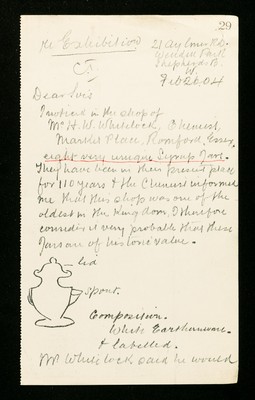 29
re Exhibition
21 Aylmer Rd.
Wendell Park
Shepherds B.
W.
Feb 26, 04
Dear Sirs
I noticed in the shop of
Mr H. W. Whitlock, Chemist,
Market Place, Romford, Essex,
eight very unique Syrup Jars.
They have been in their present place
for 110 years & the Chemist informed
me that this shop was one of the
oldest in the Kingdom, I therefore
consider it very probable that these
Jars are of historic value.
lid
spout.
Composition.
White Earthenware.
& labelled.
Mr Whitlock said he would